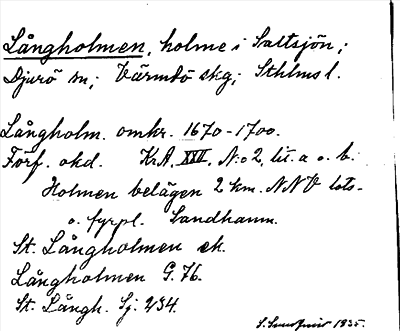 Långholmen, holme i Saltsjön;
Djurö sn; Värmdö skg; Sthlms l.
Långholm. omkr. 1670-1700.
Förf. okd. Kr.A. XXV, N:o 2, lit. a o. b.
Holmen belägen 2 km. NNV lots-
o. fyrpl. Sandhamn.
St. Långholmen ek.
Långholmen G. 76.
St. Långh. Sj. 234.
1935.